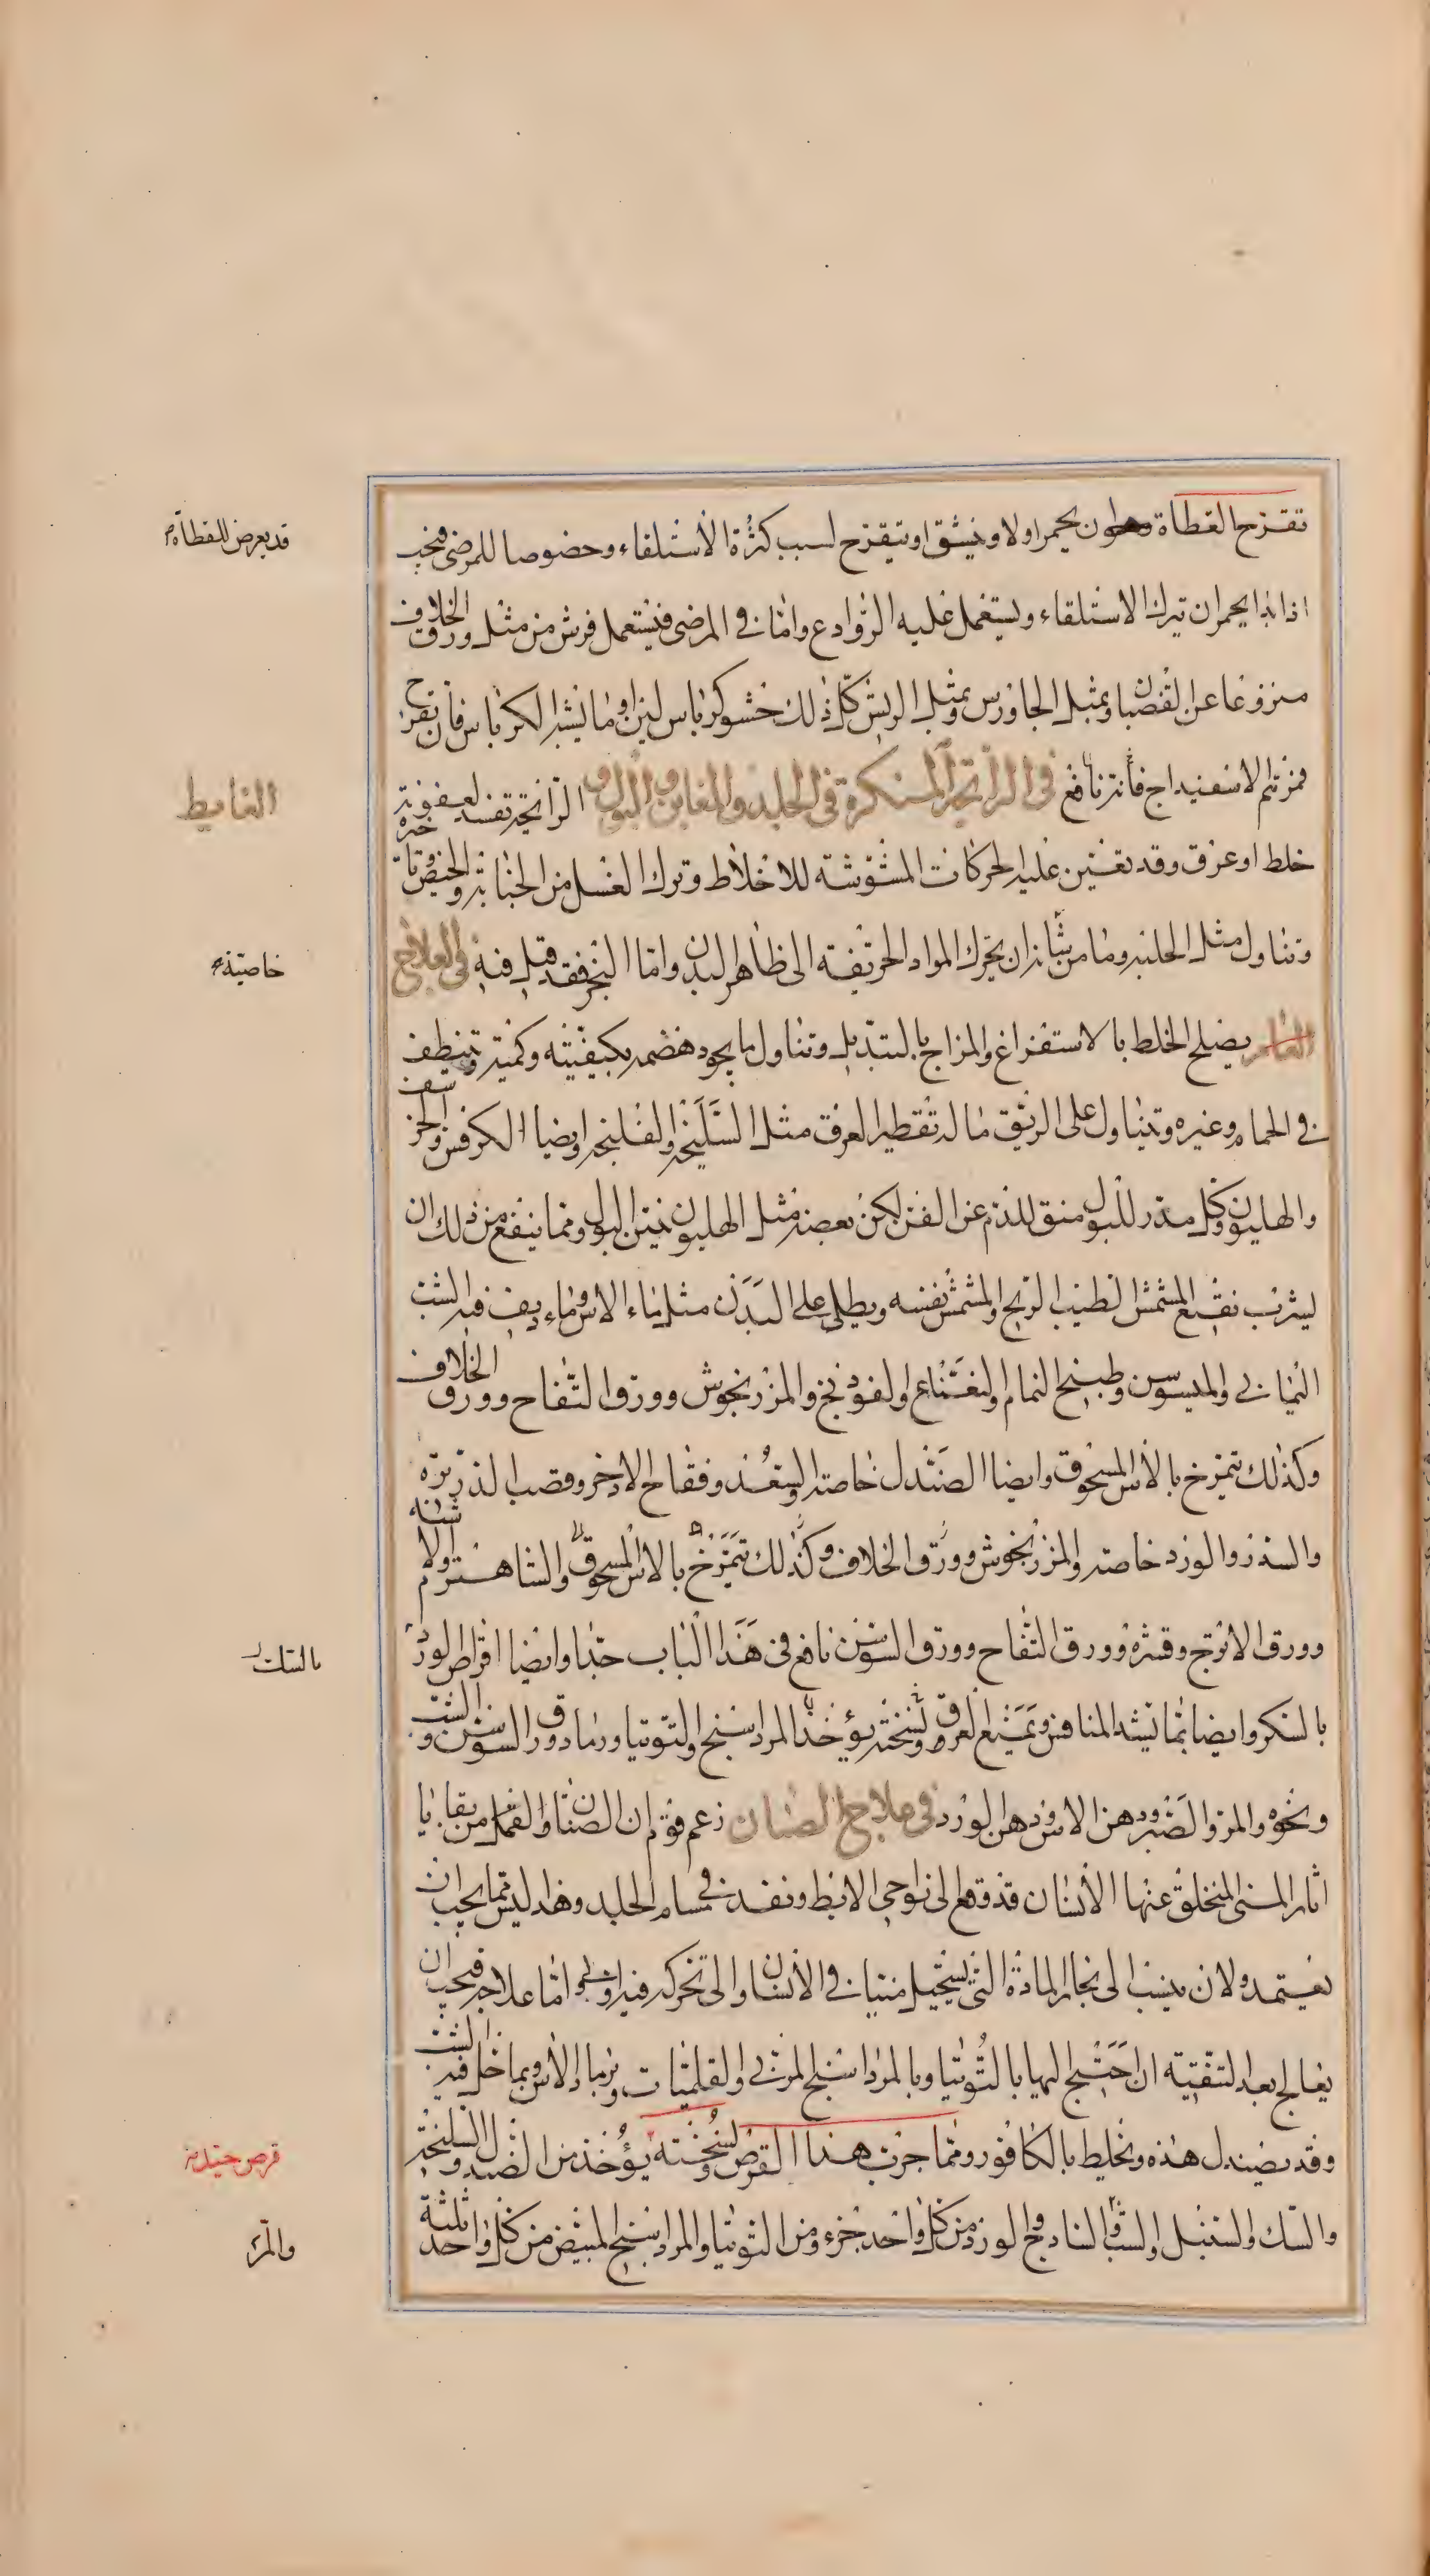 تقرح القطاة وهو ان يحمر اولا وينشق او تيقرح لسبب كثرة الأستلقاء وخصوصا للمرضى فيجب
قد يعرض للقطاة
اذا بدا يحمر ان تيرك الاستلقاء ويستعمل عليه الروادع واما في المرضى فيستعمل فرش من مثل ورق الخلاف
منزوعا عن القضبان وبمثل الجاورس وبمثل الريش كل ذلك خشو كرباس لين او ما يشبه الكرباس فان تقرح
فمرهم الاسفيداج فانه نافع في الرائحة المنكرة في الجلد والمغابن والبول و الرائحة تفسد لعفونة
الغايط
خلط او عرق وقد تعين عليه الحركات المشوشة للاخلاط وترك الغسل من الجنابة والحيض وتاخره
وتناول مثل الحلبة وما من شانه ان يحرك المواد الحريفة الى ظاهر البدن واما البخر فقد قيل فيه في العلاج
خاصية
العام يصلح الخلط بالاستفراغ والمزاج بالتبديل وتناول ما يجود هضمه بكيفيته وكميته وتنظيف
في الحمام وغيره ويتناول على الريق ما له تقطير العرق مثل السليخة والفلنجة وايضا الكرفس والحرشف
والهليون وكل مدر للبول منق للدم عن العفن لكن بعضه مثل الهليون ينتن البول ومما ينفع من ذلك ان
يشرب نقيع المشمش الطيب الريح والمشمش نفسه ويطلى على البدن مثل ماء الاس وماء ديف فيه الشب
اليماني والميسوسن وطبيخ النمام والنعناع والفودنج والمرزنجوش وورق التفاح وورق الخلاف
وكذلك يتمرخ بالأس المسحوق وايضا الصندل خاصة والسعد وفقاح الاذخر وقصب الذريرة
والسذر والورد خاصة والمرزنجوش وورق الخلاف وكذلك تتمرخ بالاس المسحوق والشاهسترم والاشنه
وورق الاترج وقشره وورق التفاح وورق السوسن نافع في هذا الباب جدا وايضا اقراص الورد
بالسك
بالسكر وايضا بما يشد المنافس ويمنع العرق ونسخته يؤخذ المرداسنج والتوتيا ورماد ورق السوسن والشب
ونحوه والمر والصبر ودهن الاس ودهن الورد في علاج الصنان زعم قوم ان الصنان والقمل من بقايا
اثار المنى المتخلق عنها الأنسان قد وقع الى نواحي الابط ونفد في مسام الجلد وهذا ليس مما يجب ان
يعتمد ولان ينسب الى بخار المادة التي يستحيل منيا في الأنسان والى تحركه فيه اولى واما علاجه فيجب ان
يعالج بعد التنقية ان احتيج اليها بالتوتيا وبالمرداسنج المربى والقليميات وبرماد الأس وبما حل فيه الشب
وقد يصندل هذه ويخليط بالكافور ومما جرب هذا القرص ونسخته يؤخذ من الصندل والسليخة
قرص جيد
والسك والسنبل والشب والساذج والورد من كل واحد جزء ومن التوتيا والمرداسنج المبيض من كل واحد ثلثة
والمر